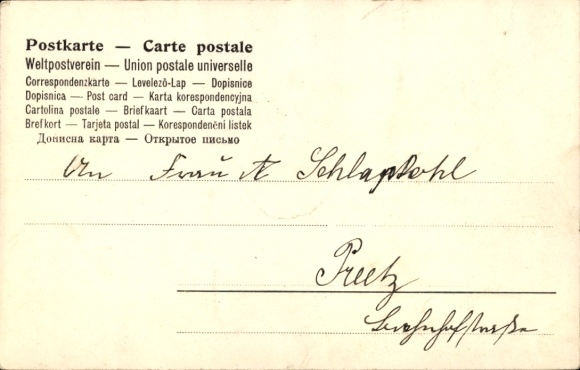 Postkarte — Carte postale
Weltpostverein — Union postale universelle
Correspondenzkarte — Levelezô-Lap — Dopisnice
Dopisnica — Post card — Karta korespondencyjna
Cartolina postale — Briefkaart — Carta postala
Brefkort — Tarjeta postal — Korespondenčni listek
Дописна карта — Открытое письмо
An Frau A Schlapkohl
Preetz
Bahnhofstraße